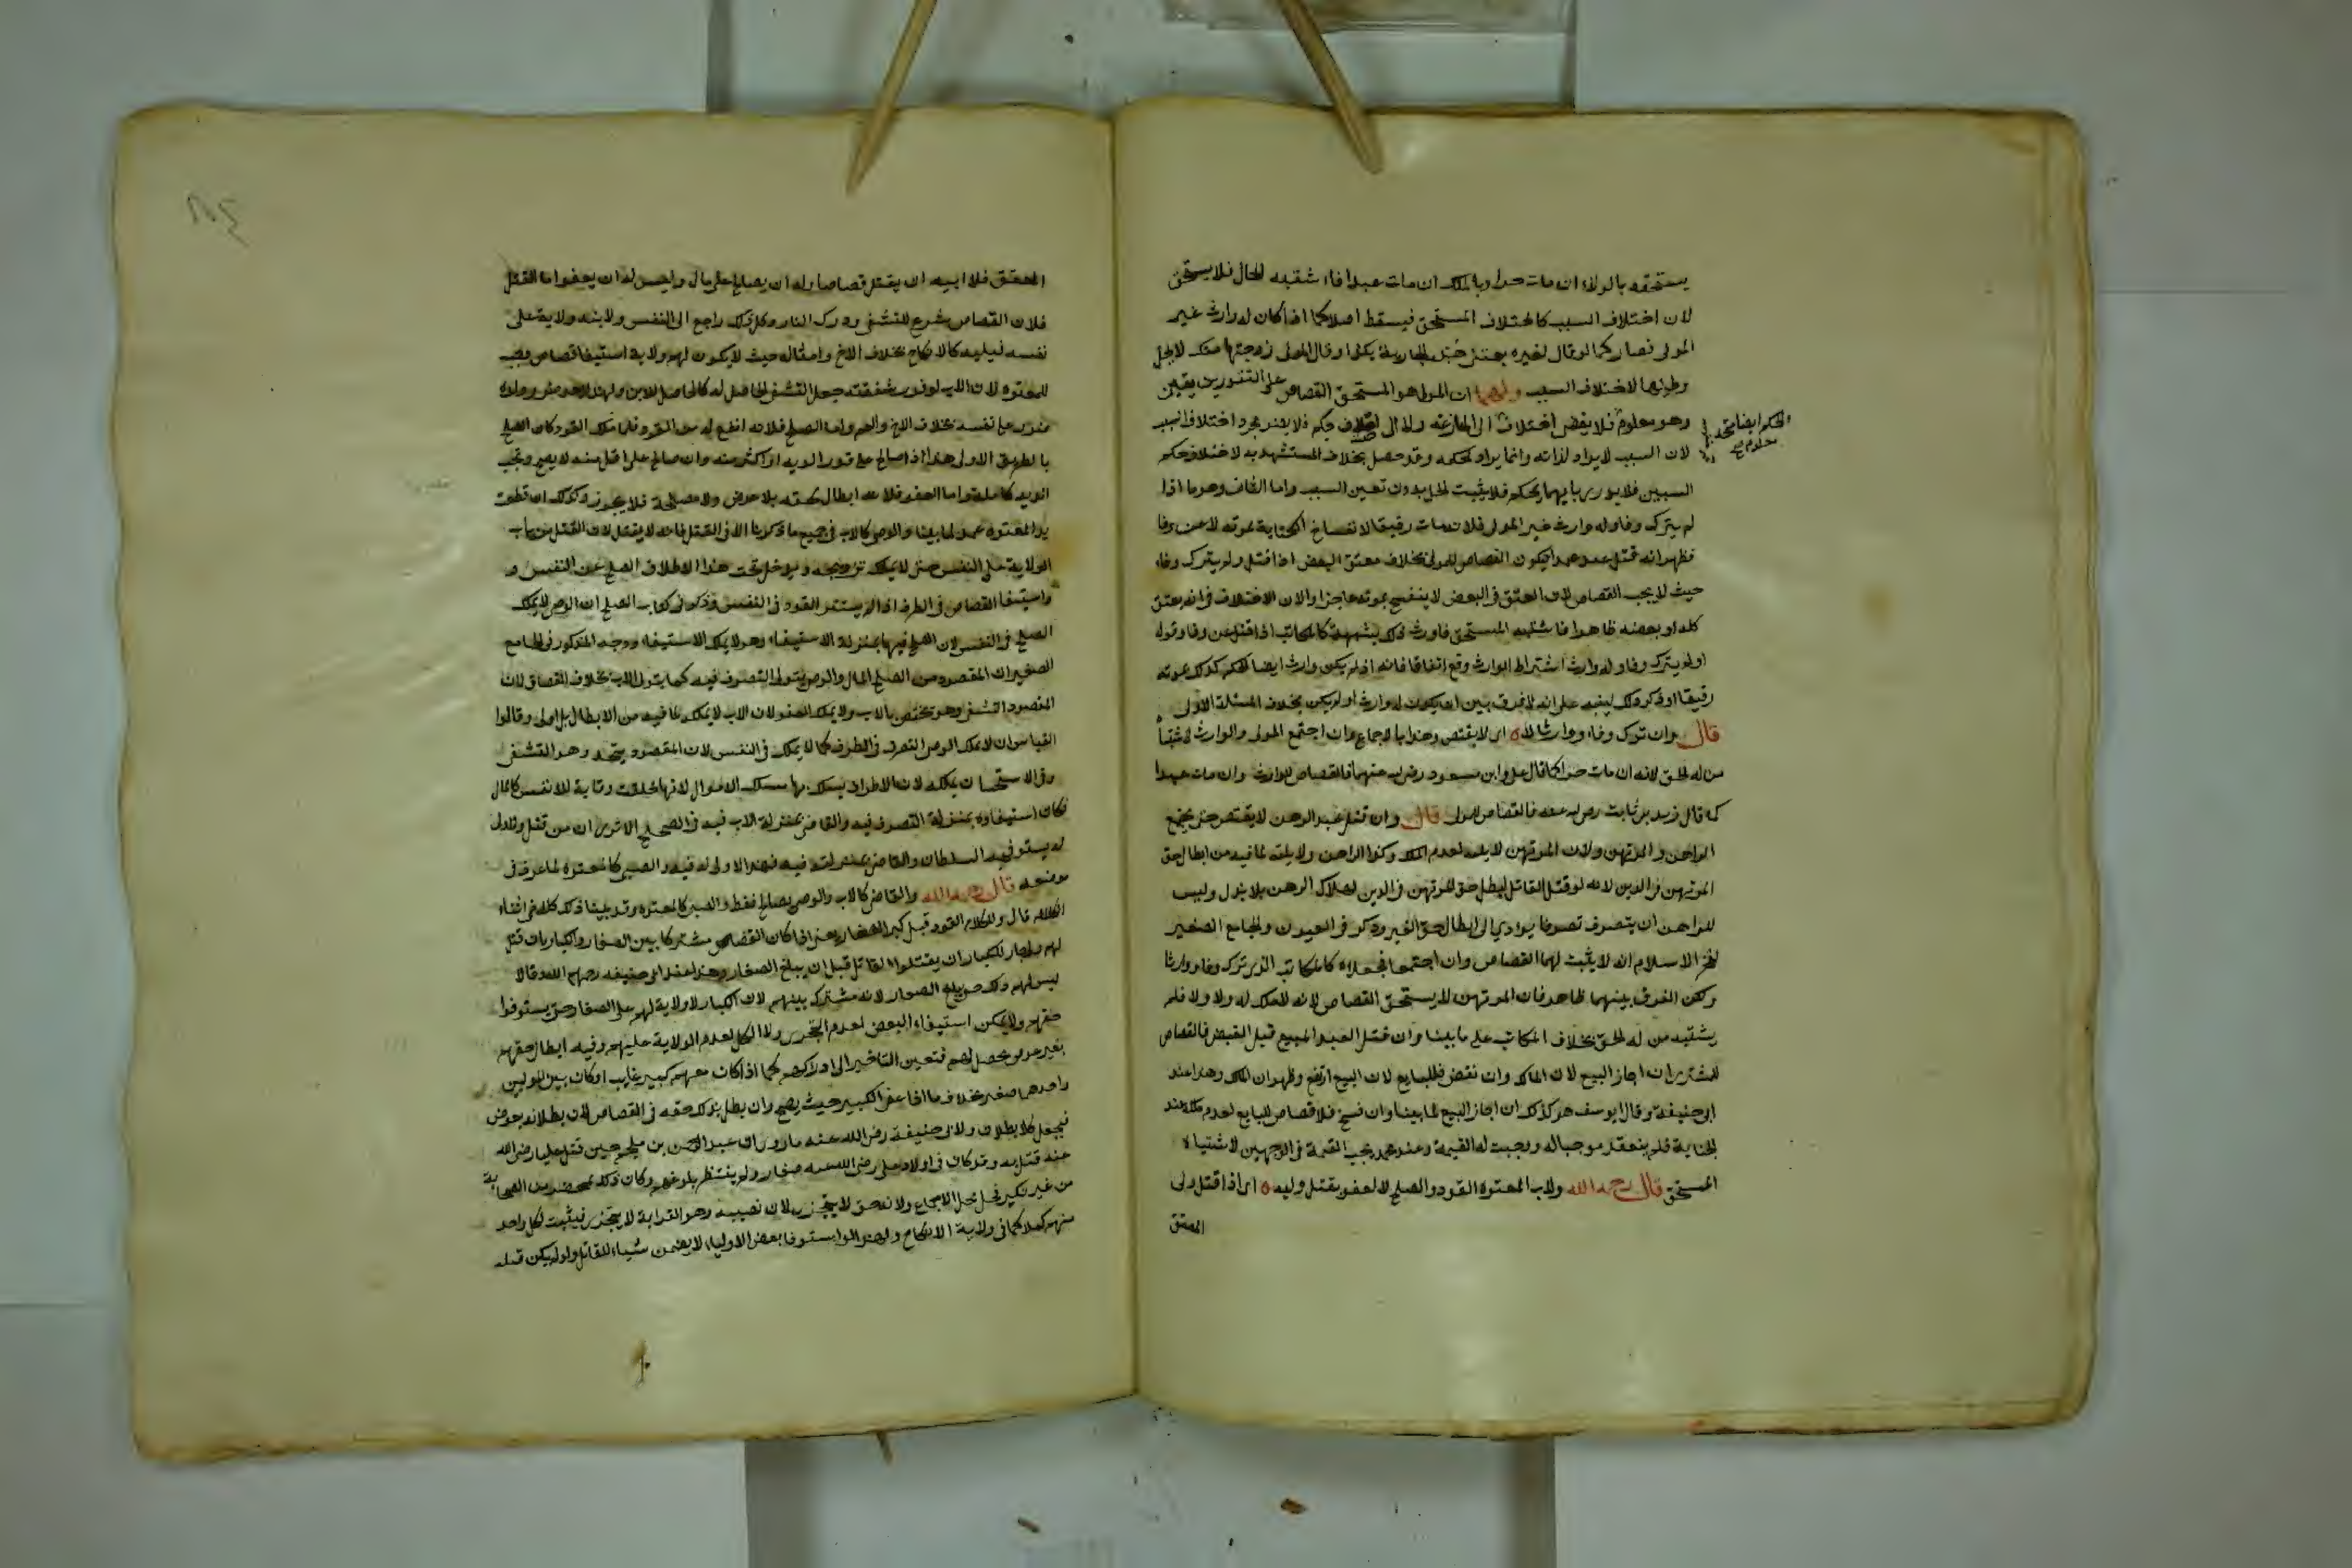 يستحقه بالولاء ان مات حرا وبالملك ان مات عبدا فاشتبه الحال فلا يستحق
لان اختلاف السبب كاختلاف المستحق فيسقط اصلا كما اذا كان له وارث غير
المولى فصار كما لو قال لغيره بعتني هذه الجارية بكذا وقال المولى زوجتها منك لا يحل
وطيها لاختلاف السبب ولهما ان المولى هو المستحق القصاص على التقديرين بيقين
وهو معلوم فلا يفضى اختلاف الى المنازعة ولا الى اختلاف حكم فلا يضر مجرد اختلاف السبب
الحكم ايضا متحد معلوم صح
لان السبب لا يراد لذاته وانما يراد لحكمه وقد حصل بخلاف المستشهد به لاختلاف حكم
السببين فلا يدرى بايهما يحكم فلا يثبت الحل بدون تعين السبب واما الثاني وهو ما اذا
لم يترك وفاء وله وارث غير المولى فلانه مات رقيقا لانفساخ الكتابة بموته لا عن وفا
فظهر انه قتل عبد عمدا فيكون القصاص للمولى بخلاف معتق البعض اذا قتل ولم يترك وفاء
حيث لا يجب القصاص لان العتق في البعض لا ينفسخ بموته عاجزا ولان الاختلاف في انه يعتق
كله او بعضه ظاهر فاشتبه المستحق فاورث ذلك شبهة كالمكاتب اذا قتل عن وفا وقوله
او لم يترك وفاء وله وارث اشتراط الوارث وقع اتفاقا فانه اذ لم يكن وارث ايضا الحكم كذلك لموته
رقيقا او ذكر ذلك لينبه على انه لا فرق بين ان يكون له وارث او لم يكن بخلاف المسئلة الاولى
قال وان ترك وفاء ووارثا لا اى لا يقتص وهذا بالاجماع وان اجتمع المولى والوارث لاشتباه
من له الحق لانه ان مات حرا كما قال على وابن مسعود رضى الله عنهما فالقصاص للوارث وان مات عبدا
كما قال زيد بن ثابت رضى الله عنه فالقصاص للمولى قال وان قتل عبد الرهن لا يقتص حتى يجتمع
الراهن والمرتهن ولان المرتهن لا يليه لعدم الملك وكذا الراهن ولا يليه لما فيه من ابطال حق
المرتهن في الدين لانه لو قتل القاتل لبطل حق المرتهن في الدين لهلاك الرهن بلا بدل وليس
للراهن ان يتصرف تصرفا يودي الى ابطال حق الغير وذكر في العيون والجامع الصغير
لفخر الاسلام انه لا يثبت لهما القصاص وان اجتمعا فجعلاه كالمكاتب الذى ترك وفاء ووارثا
ولكن الفرق بينهما ظاهر فان المرتهن لا يستحق القصاص لانه لا ملك له ولا ولاء فلم
يشتبه من له الحق بخلاف المكاتب على ما بينا وان قتل العبد المبيع قبل القبض فالقصاص
للمشترى ان اجاز البيع لانه المالك وان نقض فللبايع لان البيع ارتفع وظهر ان الملك له وهذا عند
ابى حنيفة وقال ابو يوسف هو كذلك ان اجاز البيع لما بينا وان فسخ فلا قصاص للبايع لعدم ملكه عند
الجناية فلم ينعقد موجبا له ووجبت له القيمة وعند محمد يجب القيمة في الوجهين لاشتباه
المستحق قال رحمه الله ولاب المعتوه القود والصلح لا العفو بقتل وليه اى اذا قتل ولى
المعتق
المعتق فلا ابيه ان يقتل قصاصا وله ان يصالح على مال وليس له ان يعفو اما القتل
فلان القصاص شرع للتشفى ودرك الثار وكل ذلك راجع الى النفس ولابنه ولاية على
نفسه فيليه كالانكاح بخلاف الاخ وامثاله حيث لا يكون لهم ولاية استيفا قصاص وجب
للمعتوه لان الاب لوفور شفقته جعل التشفى الحاصل له كالحاصل للابن ولهذا يعد ضرر ولده
ضررا على نفسه بخلاف الاخ والعم واما الصلح فلانه انفع له من القود فلما ملك القود كان الصلح
بالطريق الاولى هذا اذا صالح على قدر الدية او اكثر منه وان صالح على اقل منه لا يصح وتجب
الدية كاملة واما العفو فلانه ابطال لحقه بلا عوض ولا مصلحة فلا يجوز وكذلك ان قطعت
يد المعتوه عمدا لما بينا والوصى كالاب في جميع ما ذكرنا الا في القتل فانه لا يقتل لان القتل من باب
الولاية على النفس حتى لا يملك تزويجه ويدخل تحت هذا الاطلاق الصلح عن النفس و
واستيفا القصاص في الطرف اذا لم يستثن الا القود في النفس وذكر في كتاب الصلح ان الوصى لا يملك
الصلح في النفس لان الصلح فيها بمنزلة الاستيفاء وهو لا يملك الاستيفاء ووجه المذكور في الجامع
الصغير ان المقصود من الصلح المال والوصى يتولى التصرف فيه كما يتولى الاب بخلاف القصاص لان
المقصود التشفى وهو مختص بالاب ولا يملك العفو لان الاب لا يملكه لما فيه من الابطال بل اولى وقالوا
القياس ان لا يملك الوصى التصرف في الطرف كما لا يملك في النفس لان المقصود متحد وهو التشفى
وفى الاستحسان يملكه لان الاطراف يسلك بها مسلك الاموال لانها خلقت وقاية للانفس كالمال
فكان استيفاوه بمنزلة التصرف فيه والقاضى بمنزلة الاب فيه في الصحيح الا ترى ان من قتل ولا ولى
له يستوفيه السلطان والقاضى بمنزلته فيه فهذا اولى له فيه والصبي كالمعتوه لما عرف في
موضعه قال رحمه الله والقاضى كالاب والوصى يصالح فقط والصبى كالمعتوه وقد بينا ذلك كله في اثناء
الكلام قال وللكبار القود قبل كبر الصغار يعنى اذا كان القصاص مشتركا بين الصغار والكبار بان قتل
لهم ولى جاز للكبار ان يقتلوا القاتل قبل ان يبلغ الصغار وهذا عند ابى حنيفه رحمه الله وقالا
ليس لهم ذلك حتى يبلغ الصغار لانه مشترك بينهم لان الكبار لا ولاية لهم على الصغار حتى يستوفوا
حقهم ولا يمكن استيفاء البعض لعدم التجزى ولا الكل لعدم الولاية عليهم وفيه ابطال حقهم
بغير عوض يحصل لهم فتعين التاخير الى ادراكهم كما اذا كان معهم كبير غايب او كان بين الموليين
واحدهما صغير بخلاف ما اذا عفى الكبير حيث يصح وان بطل بذلك حقه في القصاص لان بطلانه بعوض
فيجعل كلا بطلان ولابى حنيفة رضى الله عنه ما روى ان عبد الرحمن بن ملجم حين قتل عليا رضى الله
عنه قتل به وقد كان في اولاد على رضى الله عنه صغار ولم ينتظر بلوغهم وكان ذلك بمحضر من الصحابة
من غير نكير فحل محل الاجماع ولانه حق لا يتجزى لان سببه وهو القرابة لا يتجزى فيثبت لكل واحد
منهم كملا كما في ولاية الانكاح ولهذا لو استوفا بعض الاولياء لا يضمن شياء للقاتل ولو لم يكن قتله